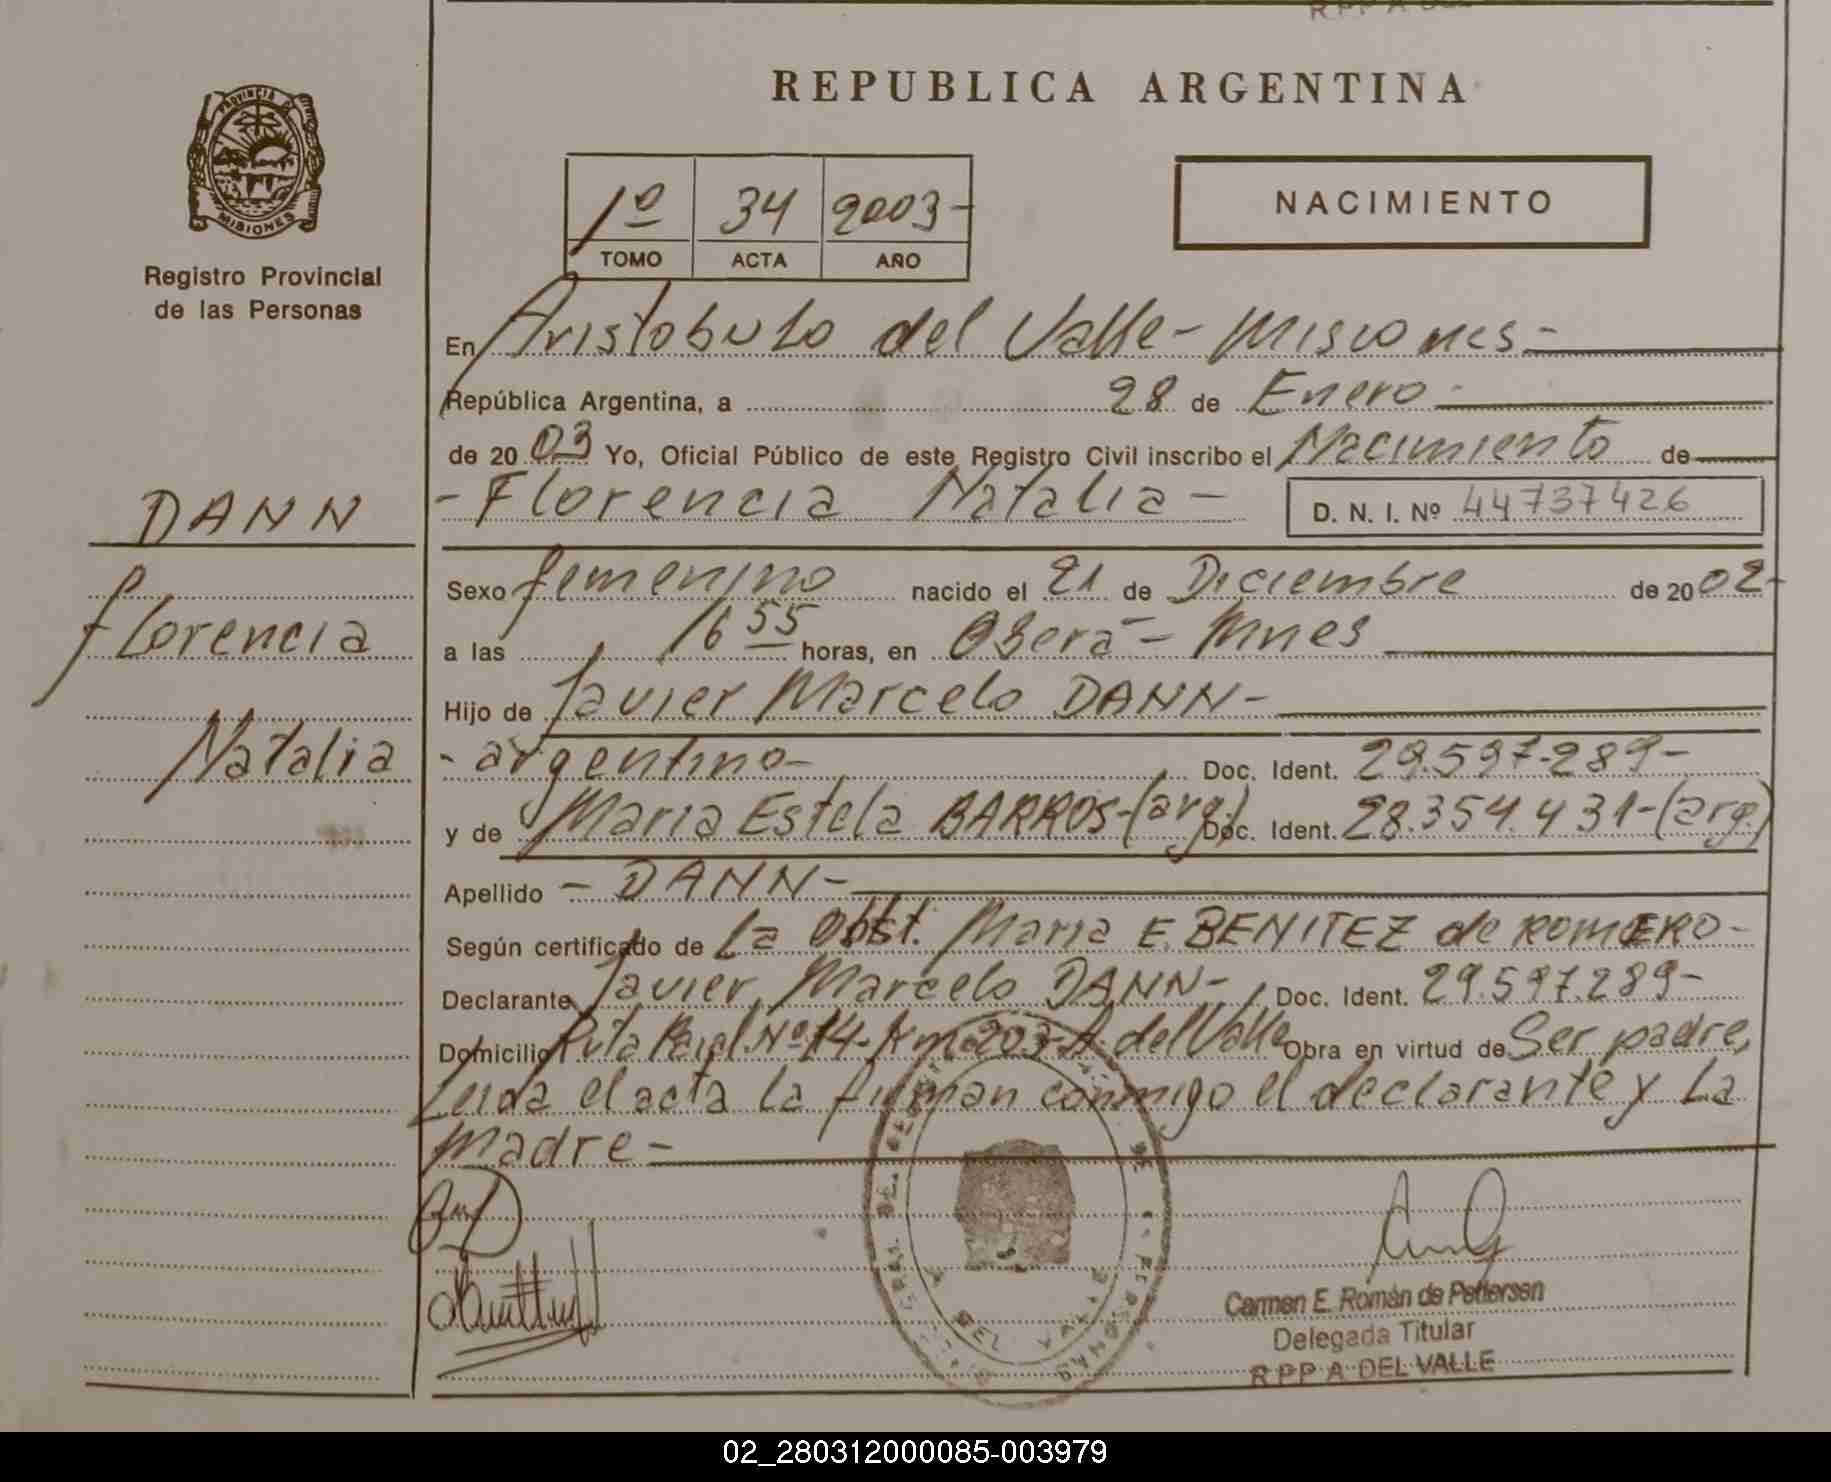 REPUBLICA ARGENTINA
PROVINCIA D
MISIONES
Registro Provincial
de las Personas
1º 34 2003-
TOMO ACTA AÑO
NACIMIENTO
En Aristobulo del Valle - Misiones -
República Argentina, a 28 de Enero -
de 2003 Yo, Oficial Público de este Registro Civil inscribo el Nacimiento de
- Florencia Natalia - D. N. I. Nº 44737426
DANN
Florencia
Natalia
Sexo femenino nacido el 21 de Diciembre de 2002-
a las 16 55 horas, en Oberá - Mnes
Hijo de Javier Marcelo DANN -
- argentino - Doc. Ident. 29.597.289 -
y de Maria Estela BARROS - (arg.) Doc. Ident. 28.354.431 - (arg.)
Apellido - DANN -
Según certificado de La Obst. Maria E. BENITEZ de ROMERO -
Declarante Javier Marcelo DANN - Doc. Ident. 29.597.289 -
Domicilio Ruta Nº 14 - Km 203 - A. del Valle Obra en virtud de Ser padre,
Leida el acta la firman conmigo el declarante y La
madre -
Carmen E. Román de Pettersen
Delegada Titular
R P P A DEL VALLE
A DEL VALLE
02_280312000085-003979